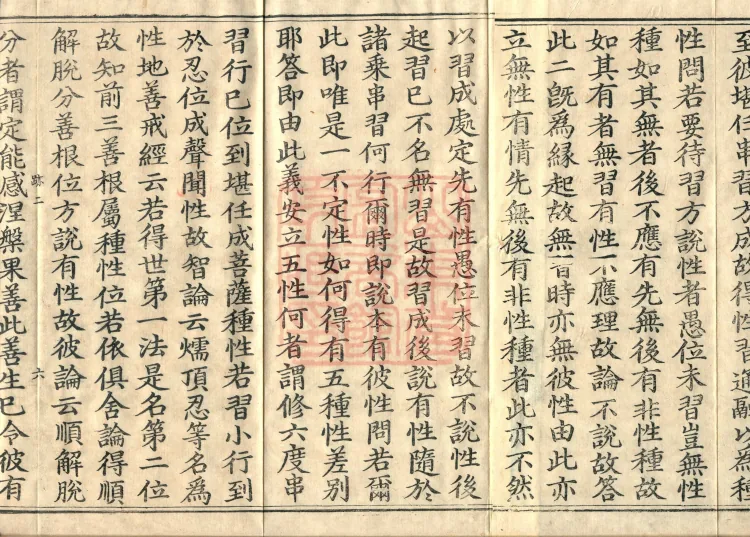 至彼堪任串習方成故得性習通融以為種
性問若要待習方說性者愚位未習豈無性
種如其無者後不應有先無後有非性種故
如其有者無習有性不應理故論不說故答
此二旣爲縁起故無習時亦無彼性由此亦
立無性有情先無後有非性種者此亦不然
以習成處定先有性愚位未習故不說性後
起習已不名無習是故習成後說有性隨於
諸乘串習何行爾時即說本有彼性問若爾
此即唯是一不定性如何得有五種性差别
耶答即由此義安立五性何者謂修六度串
習行已位到堪任成菩薩種性若習小行到
於忍位成聲聞性故智論云燸頂忍等名爲
性地善戒經云若得世第一法是名第二位
故知前三善根屬種性位若依俱舍論得順
解脫分善根位方說有性故彼論云順解脫
跡二
六
分者謂定能感涅槃果善此善生已令彼有